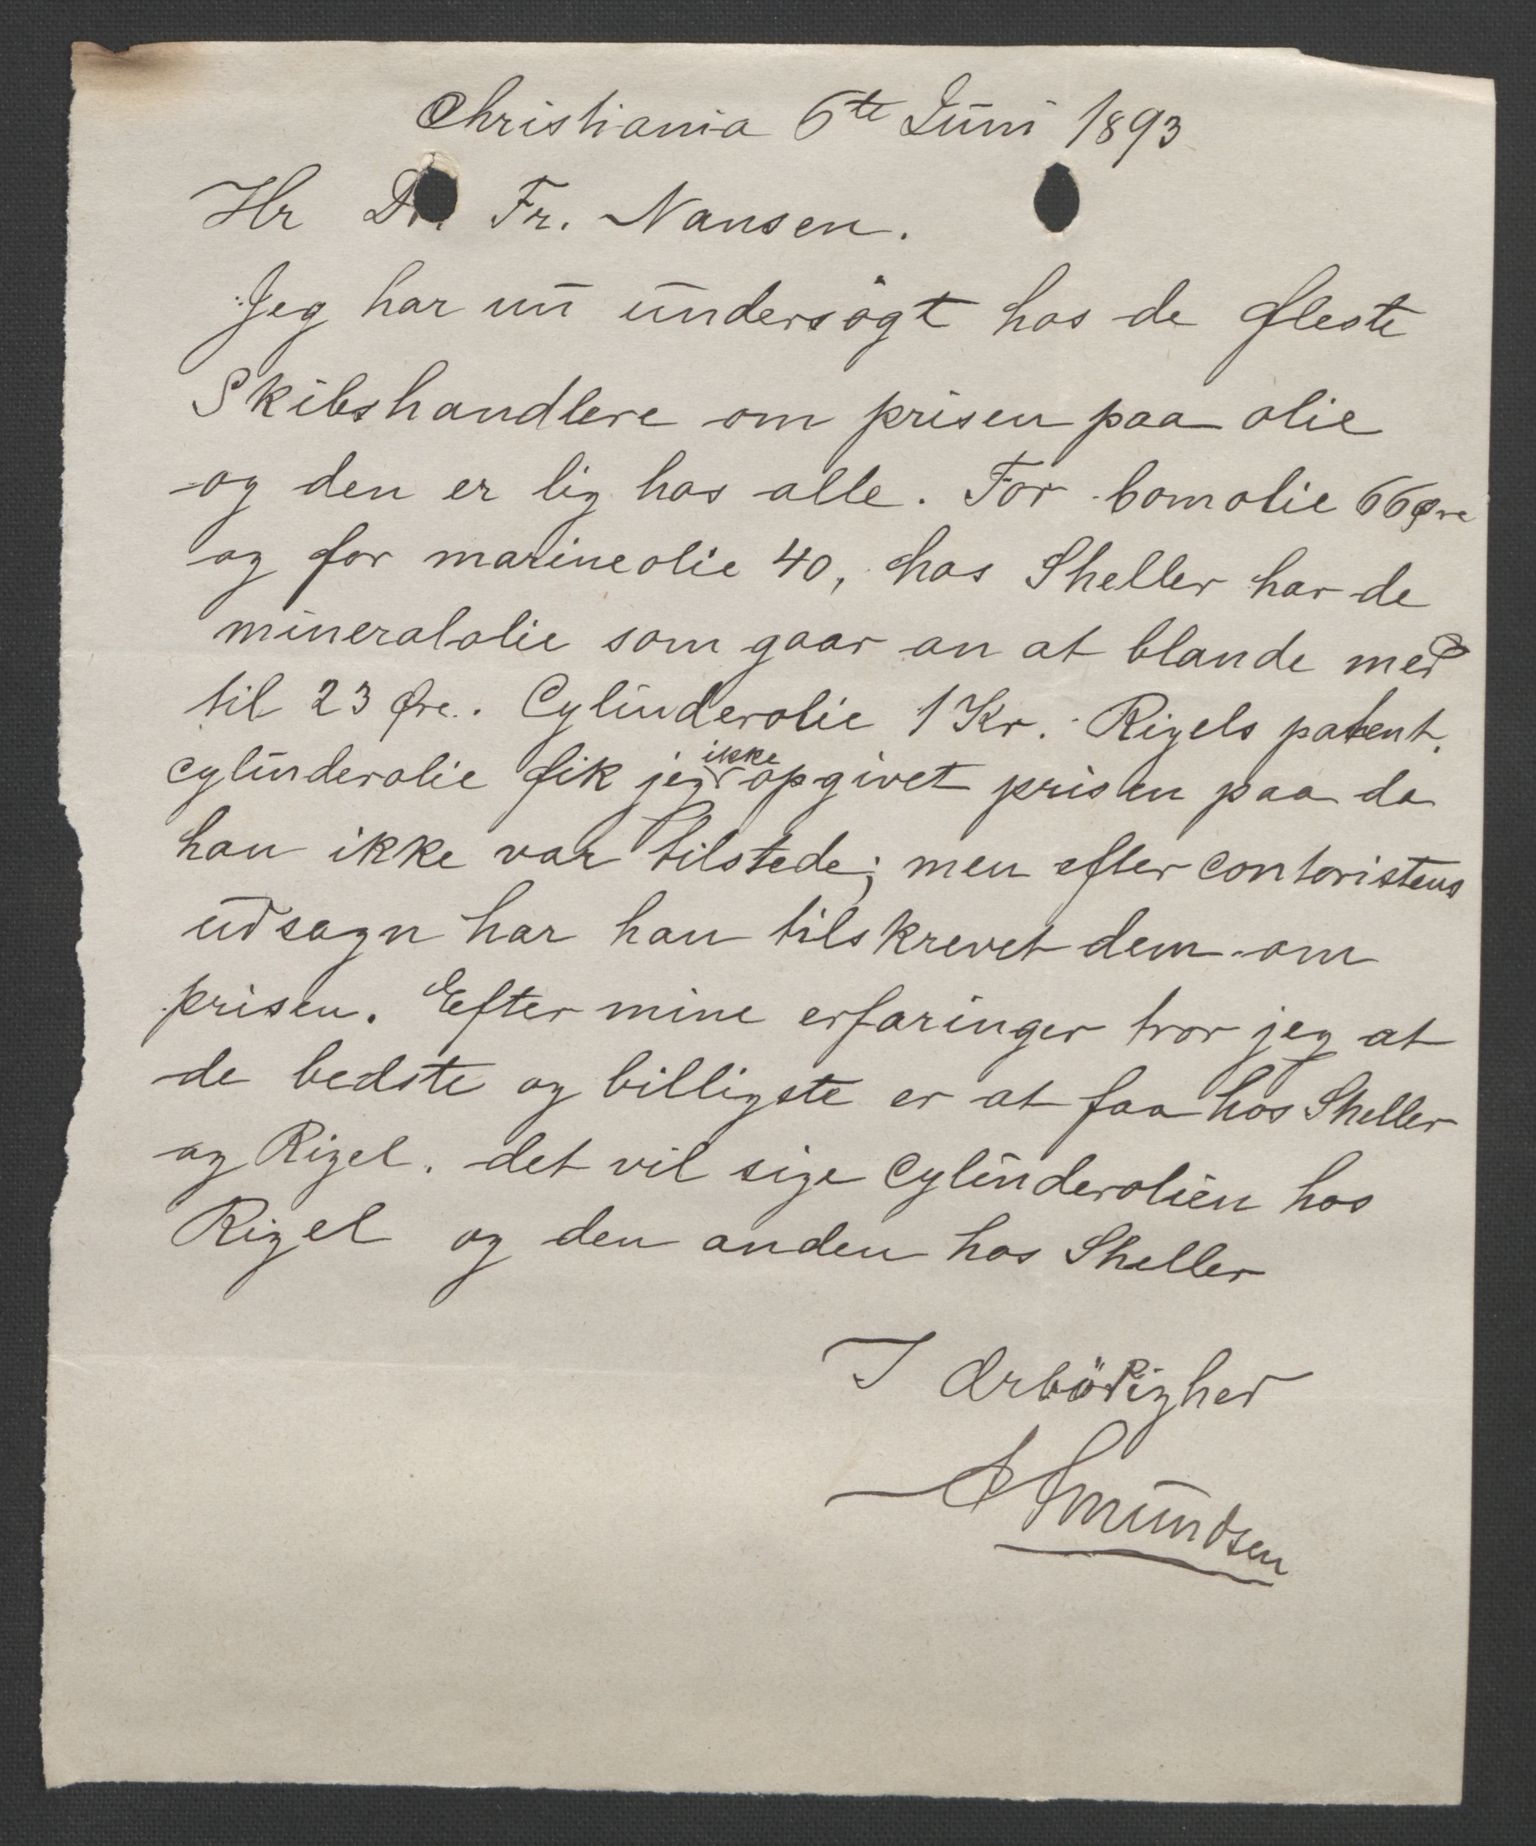 Christiania 6te Juni 1893
Hr Dr. Fr. Nansen.
Jeg har nu undersøgt hos de fleste
Skibshandlere om prisen paa olie
og den er lig hos alle. For bomolie 66 Øre
og for marineolie 40, hos Sheller har de
mineralolie som gaar an at blande med
til 23 Øre. Cylinderolie 1 Kr. Rigels patent.
cylinderolie fik jeg ikke opgivet prisen paa da
han ikke var tilstede; men efter contoristens
udsagn har han tilskrevet dem om
prisen. Efter mine erfaringer tror jeg at
de bedste og billigste er at faa hos Sheller
og Rigel. det vil sige Cylinderolien hos
Rigel og den anden hos Sheller
I Ærbödighed
A Amundsen